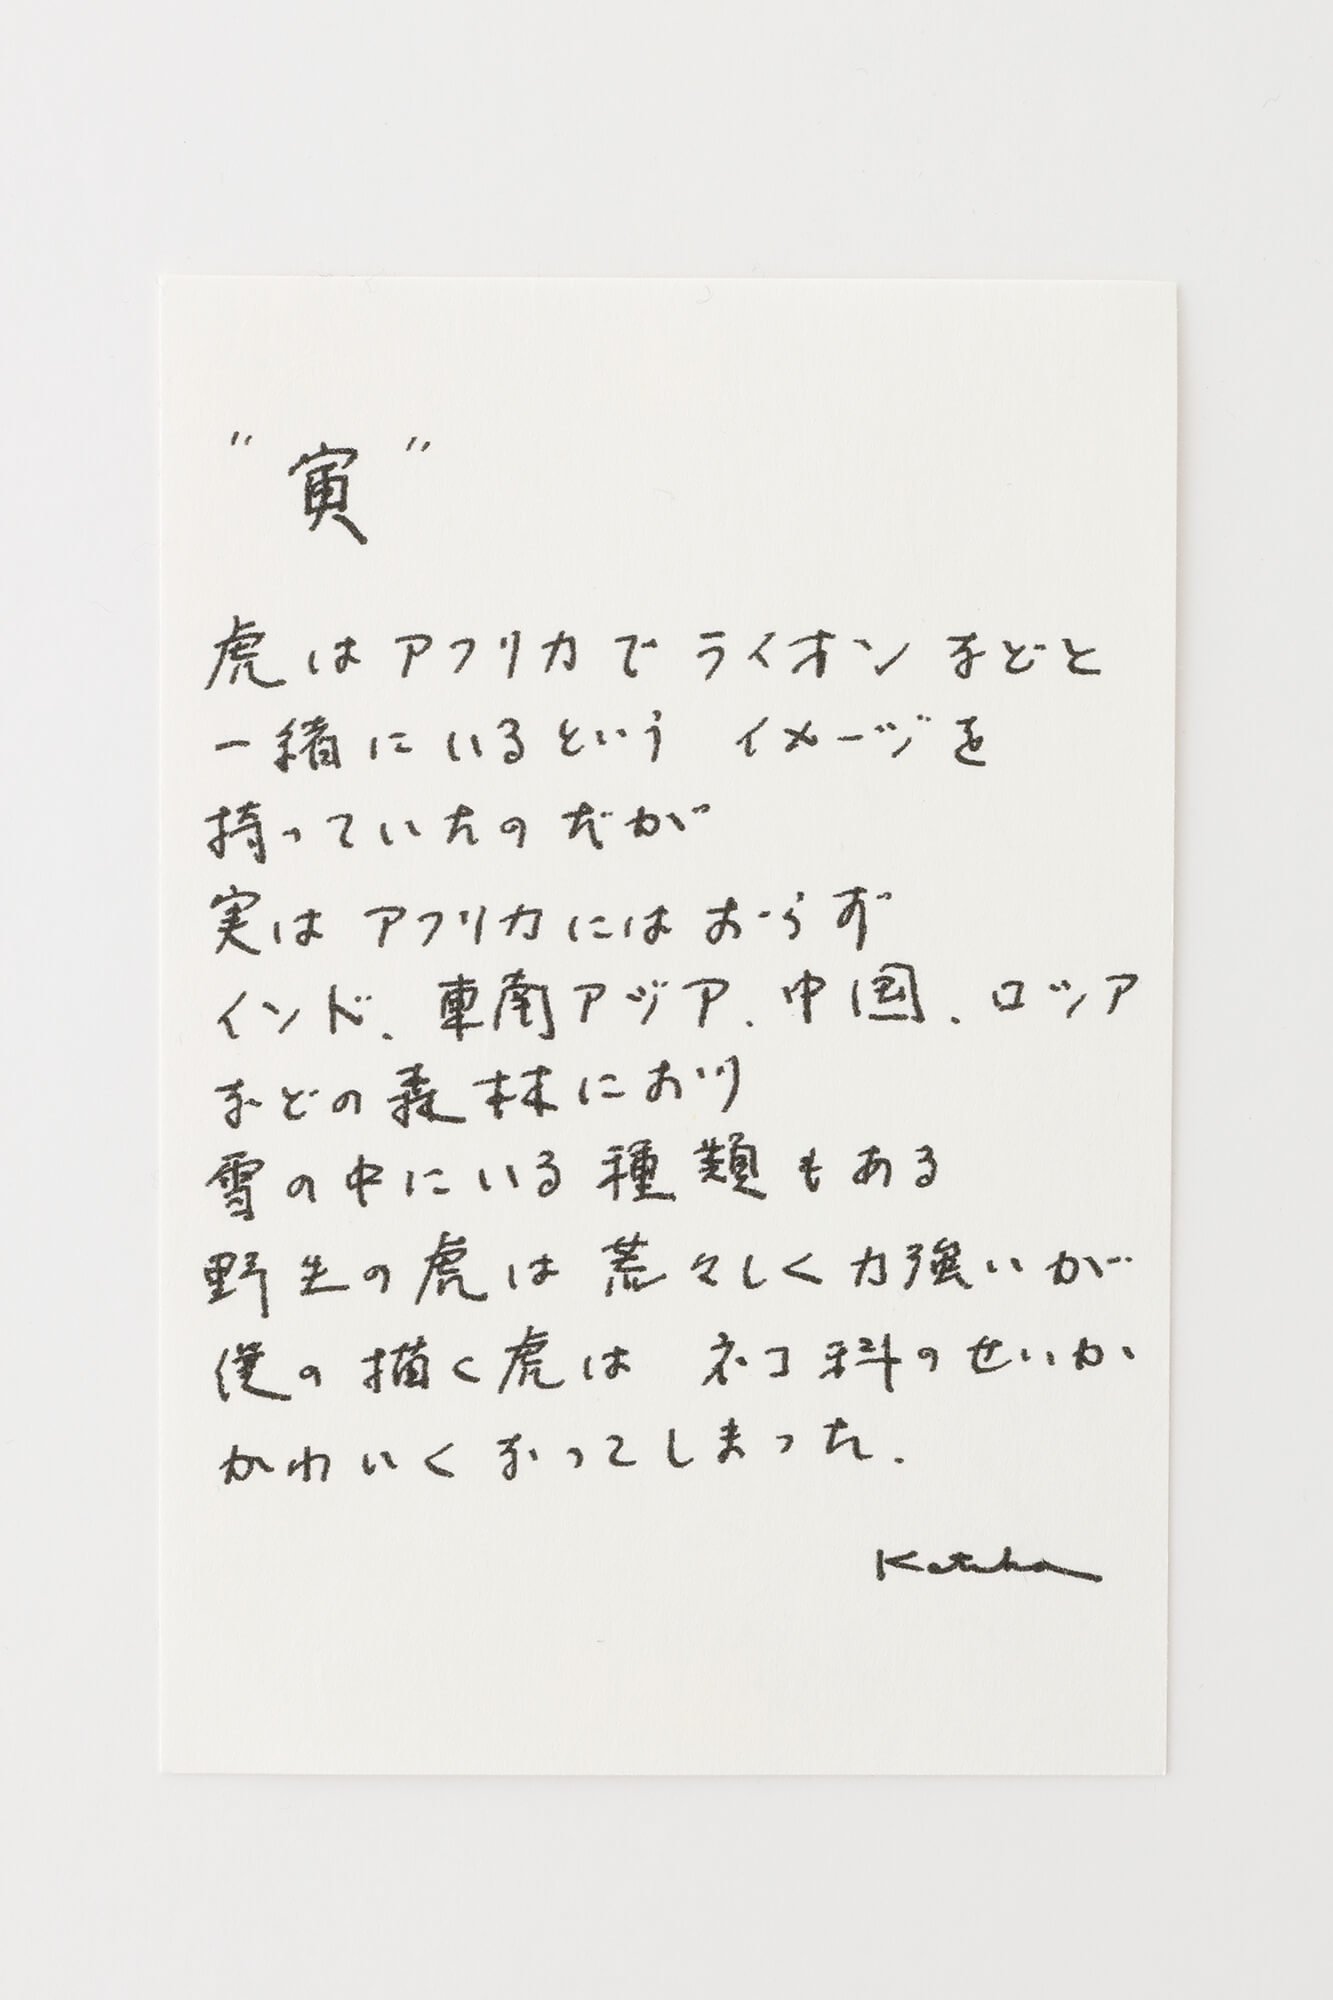 "寅"
虎はアフリカでライオンなどと
一緒にいるという イメージを
持っていたのだが
実はアフリカにはおらず
インド、東南アジア、中国、ロシア
などの森林におり
雪の中にいる種類もある
野生の虎は荒々しく力強いが
僕の描く虎は ネコ科のせいか
かわいくなってしまった.